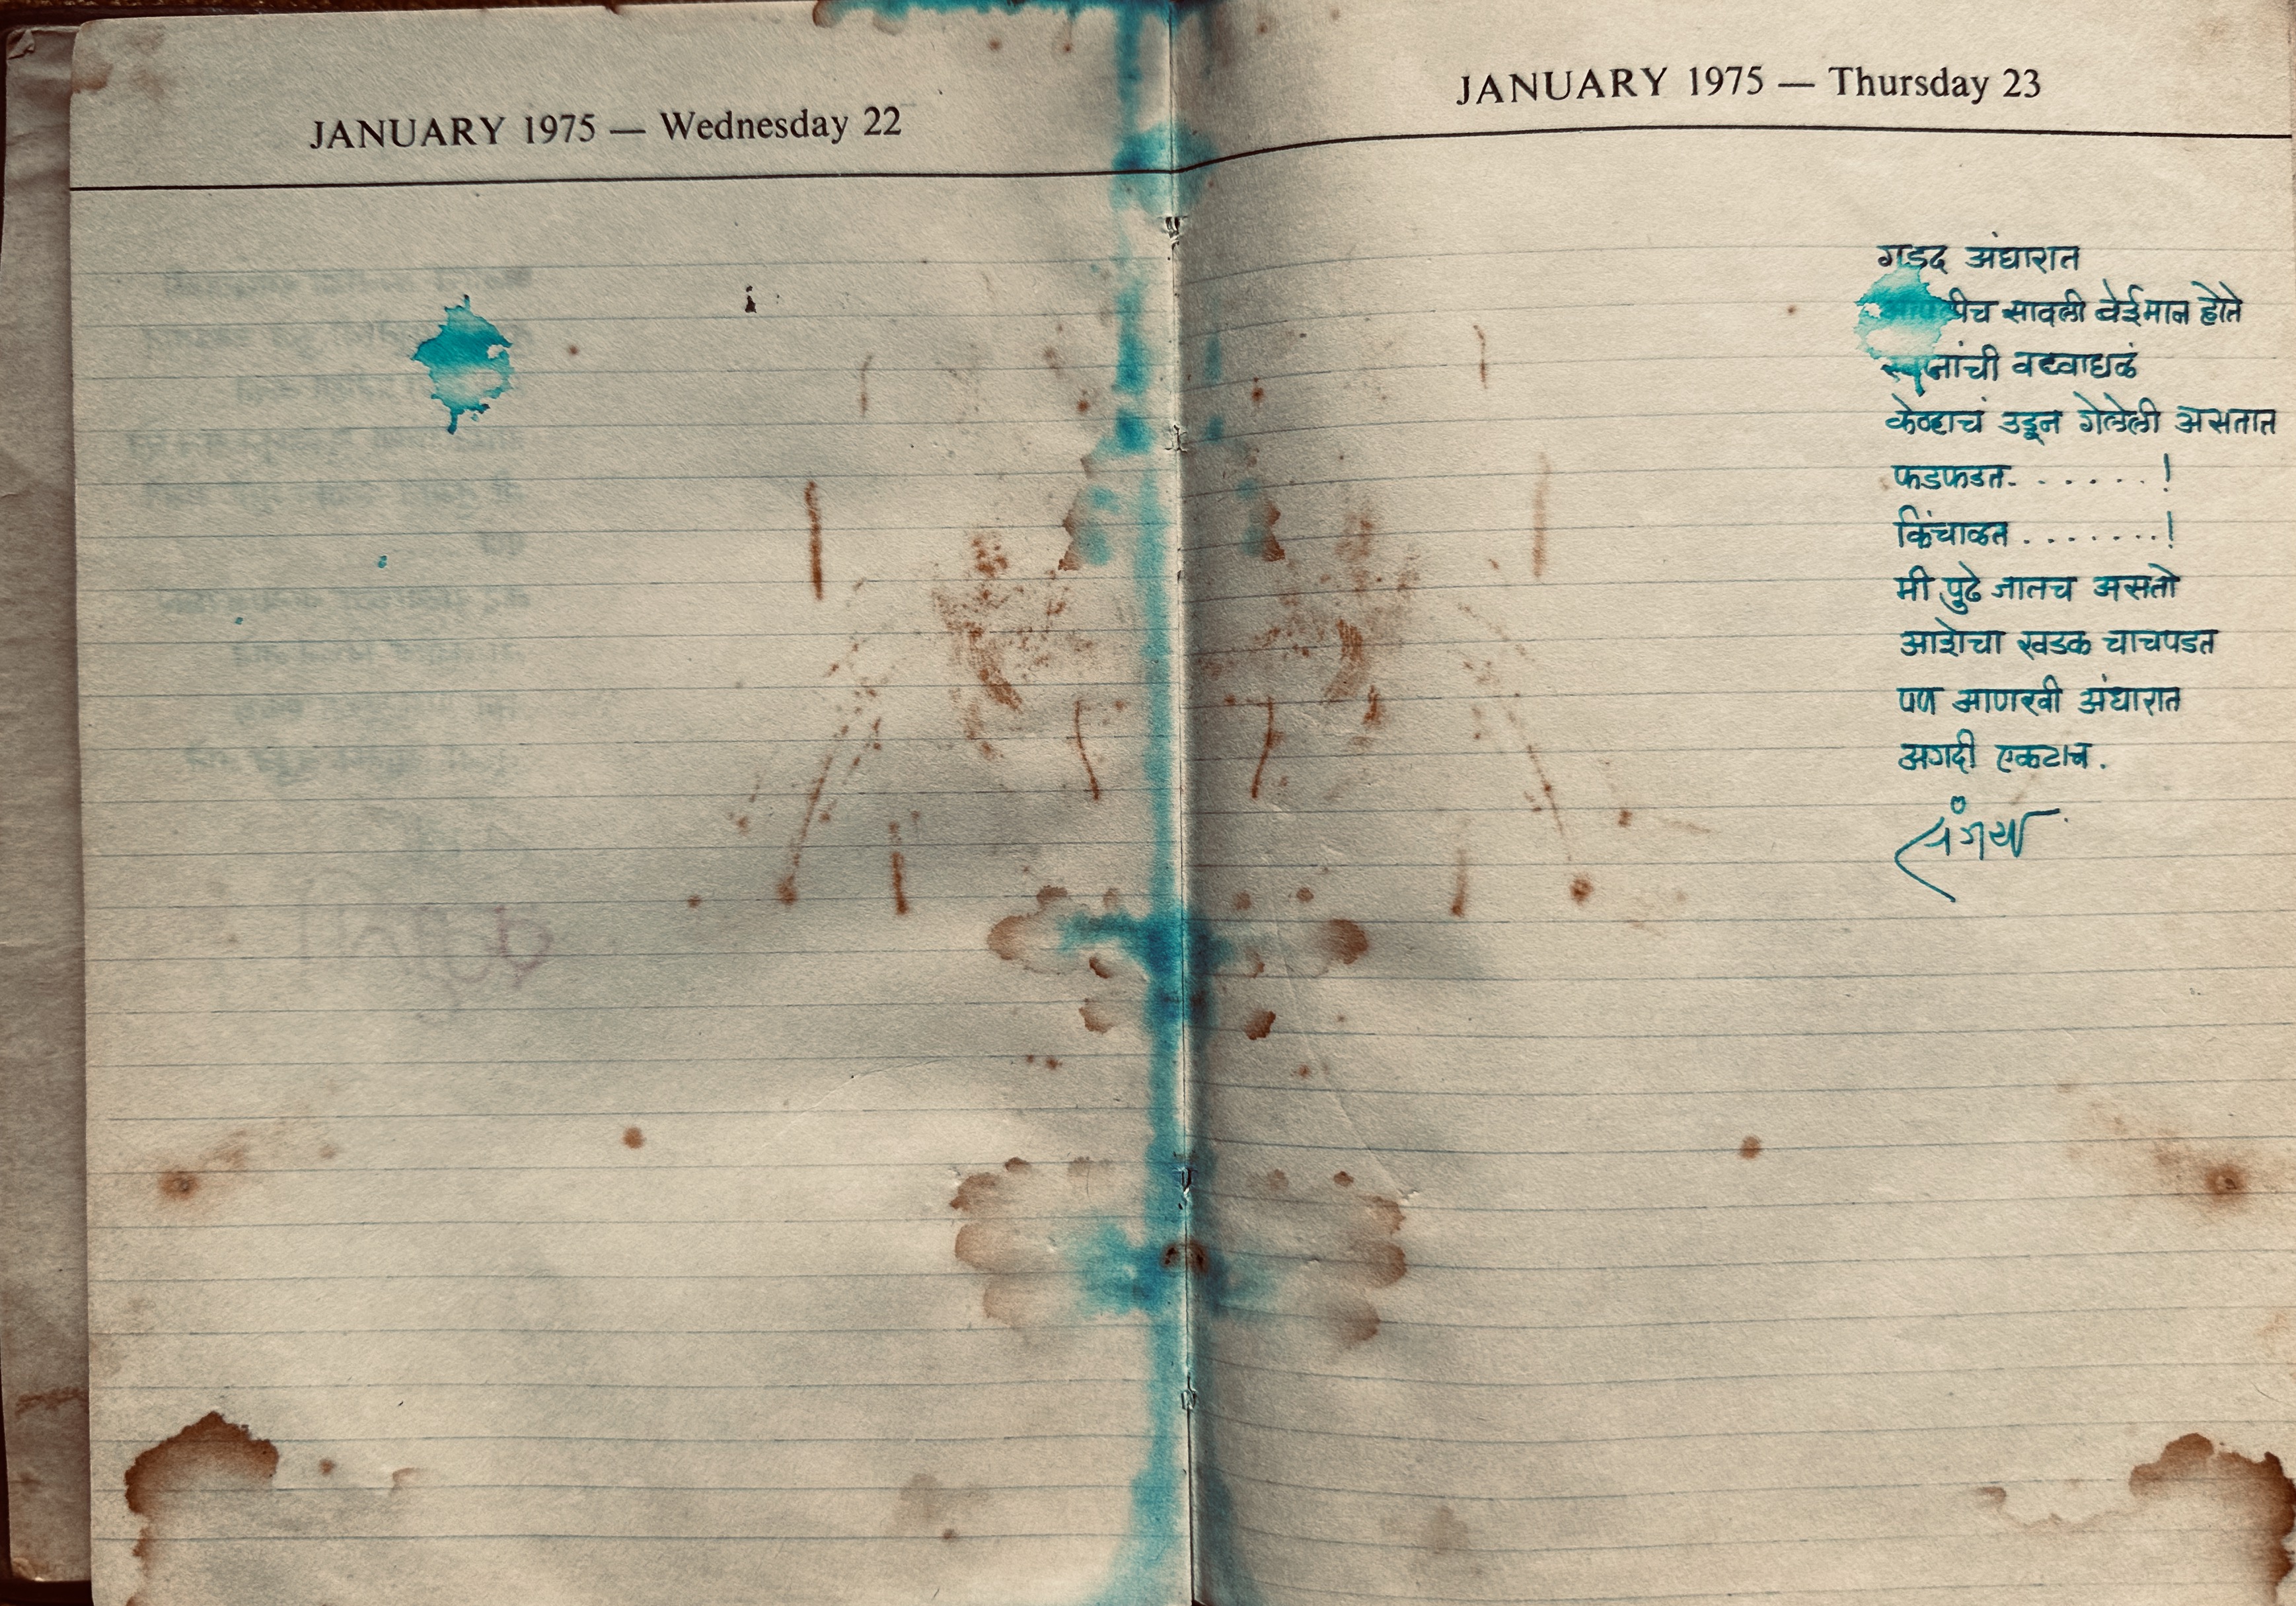 JANUARY 1975 — Wednesday 22
JANUARY 1975 — Thursday 23
गडद अंधारात
आपलीच सावली बेईमान होते
स्वप्नांची वटवाघळं
केव्हाचं उडून गेलेली असतात
फडफडत. . . . . . . !
किंचाळत . . . . . . . !
मी पुढे जातच असतो
आशेचा खडक चाचपडत
पण आणखी अंधारात
अगदी एकटाच.